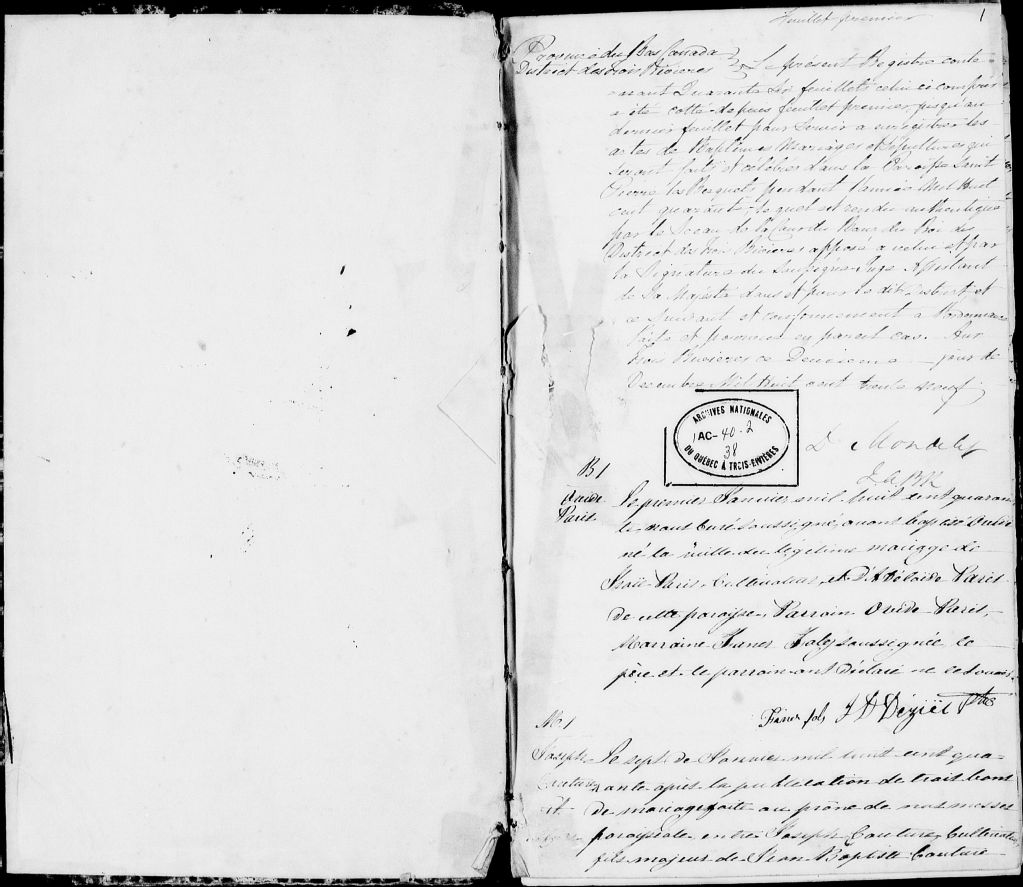 feuillet premier
1
Province du Bas Canada
District des trois Rivieres
Le présent Registre conte-
nant Quarante six feuillets celui ci compris
a été cotté depuis feuillet premier jusqu'au
dernier feuillet pour servir a enregistrer les
actes de Baptêmes Mariages et Sépultures qui
seront faits et célébrés dans la Paroisse Saint
Pierre les Becquets pendant l'année Mil Huit
cent quarante, lequel est rendu authentique
par le Sceau de la Cour du Banc du Roi du
District des trois Rivieres apposé a celui et par
la Signature du Soussigné Juge Assistant
de Sa Majesté dans et pour le dit District, et
ce suivant et conformement a l'ordonnance
faite et pourvue en pareil cas. Aux
trois Rivieres ce Deuxieme jour de
Decembre Mil Huit cent trente neuf
ARCHIVES NATIONALES
1AC-40-2
38
DU QUÉBEC À TROIS-RIVIÈRES
D Mondelet
J A B R
B 1
Ovide
Paris
Le premier Janvier mil huit cent quaran-
te, nous Curé soussigné, avons baptisé Ovide
né la veille du légitime mariage de
Paris, Cultivateur, et d'Adélaïde Paris
de cette paroisse, Parrain Ovide Paris,
Marraine soussignée, le
père et le parrain ont déclaré ne le savoir.
J D Déziel Ptre
M 1
Joseph
Couture
et
Le sept de Janvier mil huit cent qua-
rante après la publication de trois bans
de mariage faite au prône de nos messes
paroissiales entre Joseph Couture Cultivateur
fils majeur de Jean Baptiste Couture